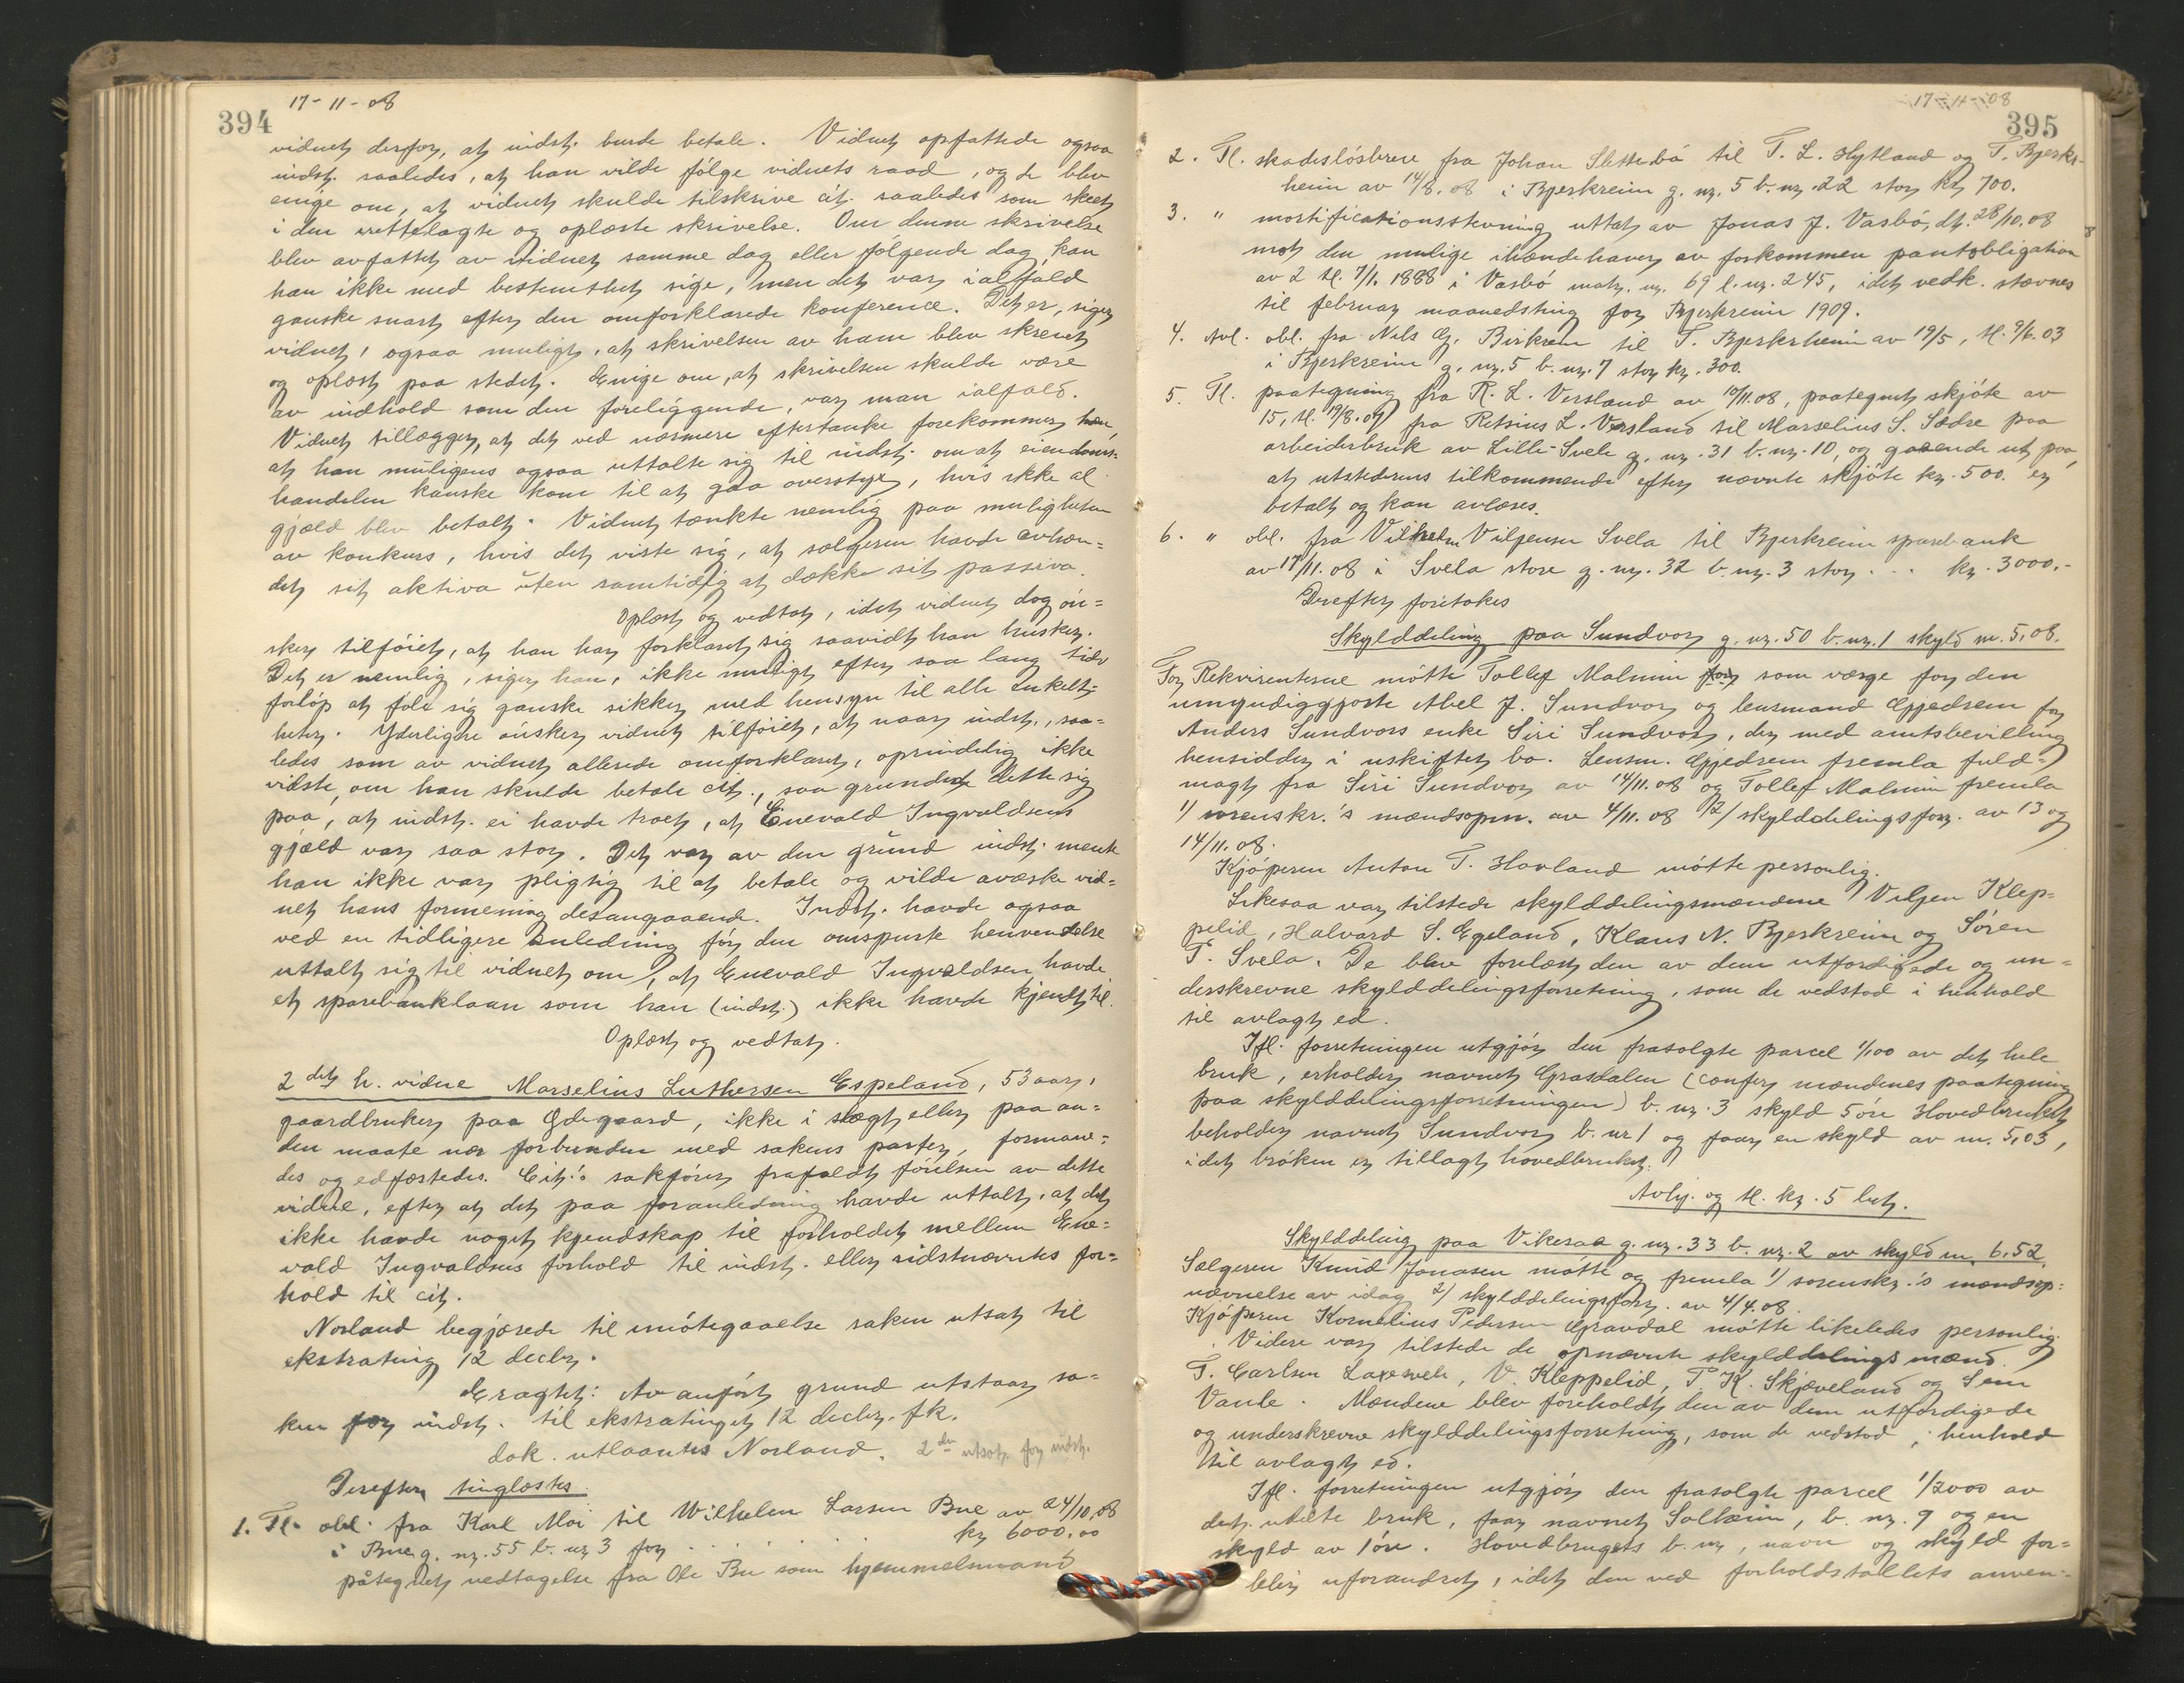 394
17-11-08
vidnet derfor, at indst. burde betale. Vidnet opfattede ogsaa
indst. saaledes, at han vilde fölge vidnets raad, og de blev
enige om, at vidnet skulde tilskrive cit. saaledes som skeet
i den rettelagte og oplæste skrivelse. Om denne skrivelse
blev avfattet av vidnet samme dag eller fölgende dag, kan
han ikke med bestemthet sige, men det var ialfald
ganske snart efter den omforklarede konference. Det er, siger
vidnet, ogsaa muligt, at skrivelsen av ham blev skrevet
og oplæst paa stedet. Enige om, at skrivelsen skulde være
av indhold som den foreliggende, var man ialfald.
Vidnet tillægger, at det ved nærmere eftertanke forekommer ham,
at han muligens ogsaa uttalte sig til indst. om at eiendoms-
handelen kanske kom til at gaa overstyr, hvis ikke al
gjæld blev betalt. Vidnet tænkte nemlig paa muligheten
av konkurs, hvis det viste sig, at sælgeren havde avhæn=
det sit aktiva uten samtidig at dække sit passiva.
Oplæst og vedtat, idet vidnet dog ön=
sker tilföiet, at han har forklaret sig saavidt han husker.
Det er nemlig, siger han, ikke muligt efter saa lang tids
forlöp at föle sig ganske sikker med hensyn til alle enkelt=
heter. Yderligere önsker vidnet tilföiet, at naar indst., saa=
ledes som av vidnet allerede omforklaret, oprindelig ikke
vidste, om han skulde betale cit., saa grundede dette sig
paa, at indst. ei havde troet, at Enevald Ingvaldsens
gjæld var saa stor. Det var av den grund indst. mente
han ikke var pligtig til at betale og vilde avæske vid=
net hans formening desangaaende. Indst. havde ogsaa
ved en tidligere anledning för den omspurte henvendelse
uttalt sig til vidnet om, at Enevald Ingvaldsen havde
et sparebanklaan som han (indst.) ikke havde kjendt til.
Oplæst og vedtat.
2det h. vidne Marselius Luthersen Espeland, 53 aar,
gaardbruker paa Ødegaard, ikke i slægt eller paa an=
den maate nær forbunden med sakens parter, formane=
des og edfæstedes. Cit.'s sakförer frafaldt förelsen av dette
vidne, efter at det paa foranledning havde uttalt, at det
ikke havde noget kjendskap til forholdet mellem Ene=
vald Ingvaldsens forhold til indst. eller sidstnævntes for=
hold til cit.
Norland begjærede til imötegaaelse saken utsat til
ekstrating 12 decbr.
Eragtet: Av anfört grund utstaar sa=
ken for indst. til ekstratinget 12 decbr. fk.
dok. utlaantes Norland. 2den utsæt. for indst.
Derefter tinglæstes
1. Tl. obl. fra Karl Moi til Wilhelm Larsen Bue av 24/10.08
i Bue g. nr. 55 b. nr 3 for . . . kr 6000,00
påtegnet vedtagelse fra Ole Bu som hjemmelsmand
17-11-08
395
2. Tl. skadeslösbrev fra Johan Slettebö til T. L. Hytland og T. Bjerks-
heim av 14/8.08 i Bjerkreim g. nr. 5 b. nr. 22 stor kr 700.
3. " mortificationsstevning uttat av Jonas J. Vasbö, dt. 28/10.08
mot den mulige ihændehaver av forkommen pantobligation
av 2 tl. 7/1. 1888 i Vasbö matr. nr. 69 l. nr. 245, idet vedk. stævnes
til februar maanedsting for Bjerkreim 1909.
4. Avl. obl. fra Nils G. Birkrem til T. Bjerkrheim av 19/5, tl. 9/6.03
i Bjerkreim g. nr. 5 b. nr. 7 stor kr. 300.
5. Tl. paategning fra R. L. Versland av 10/11.08, paategnet skjöte av
15, tl. 19/8.07 fra Retsius L. Versland til Marselius S. Sædre paa
arbeidsbruk av Lille-Svele g. nr. 31 b. nr. 10, og gaaende ut paa,
at utstederens tilkommende efter nævnte skjöte kr. 500. er
betalt og kan avlæses.
6. " obl. fra Vilhelm Viljensen Svela til Bjerkreim sparebank
av 17/11.08 i Svela store g. nr. 32 b. nr. 3 stor . . . kr. 3000.-
Derefter foretokes
Skylddeling paa Sundvor g. nr. 50 b. nr. 1 skyld m. 5,08.
For Rekvirenterne mötte Tollef Malmin for som værge for den
umyndiggjorte Abel J. Sundvor og lensmand Gjedrem for
Anders Sundvors enke Siri Sundvor, der med amtsbevilling
hensidder i uskiftet bo. Lensm. Gjedrem fremla fuld=
magt fra Siri Sundvor av 14/11.08 og Tollef Malmin fremla
1/ sorenskr.'s mændsopn. av 4/11.08 2/ skylddelingsforr. av 13 og
14/11.08.
Kjöperen Anton T. Hovland mötte personlig.
Likesaa var tilstede skylddelingsmændene Viljen Klep=
pelid, Halvard S. Egeland, Klaus N. Bjerkreim og Sören
T. Svela. De blev forelæst den av dem utfærdigede og un=
derskrevne skylddelingsforretning, som de vedstod i henhold
til avlagt ed.
Ifl. forretningen utgjör den frasolgte parcel 1/100 av det hele
bruk, erholder navnet Grasdalen (confer mændenes paategning
paa skylddelingsforretningen) b. nr. 3 skyld 5 öre Hovedbruket
beholder navnet Sundvor b. nr 1 og faar en skyld av m. 5,03,
idet bröken er tillagt hovedbruket.
Avhj. og tl. kr. 5 bet.
Skylddeling paa Vikesaa g. nr. 33 b. nr. 2 av skyld m. 6,52.
Sælgeren Knud Jonasen mötte og fremla 1/ sorenskr.'s mændsop=
nævnelse av idag 2/ skylddelingsforr. av 4/4.08.
Kjöperen Kornelius Pedersen Gravdal mötte likeledes personlig.
Videre var tilstede de opnævnte skylddelingsmænd.
T. Carlsen Laxesvele, V. Kleppelid, T. K. Skjæveland og Sem
Vande. Mændene blev foreholdt den av dem utfærdigede
og underskrevne skylddelingsforretning, som de vedstod i henhold
til avlagt ed.
Ifl. forretningen utgjör den frasolgte parcel 1/2000 av
det utdelte bruk, faar navnet Solheim, b. nr. 9 og en
skyld av 1 öre. Hovedbrugets b. nr, navn og skyld for=
blir uforandret, idet den ved forholdstallets anven-